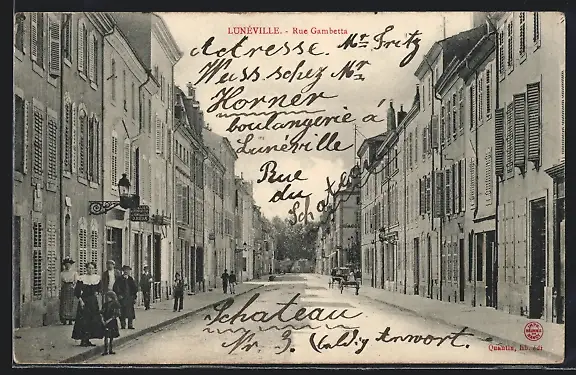 LUNÉVILLE. - Rue Gambetta
Actresse. Mr Fritz
Wuss schez Mr
Horner
boulangerie á
Lunéville
Rue
du
Schateau
Schateau
Nr. 3. (baldiy Anwort.
Quantin, Ed. édit